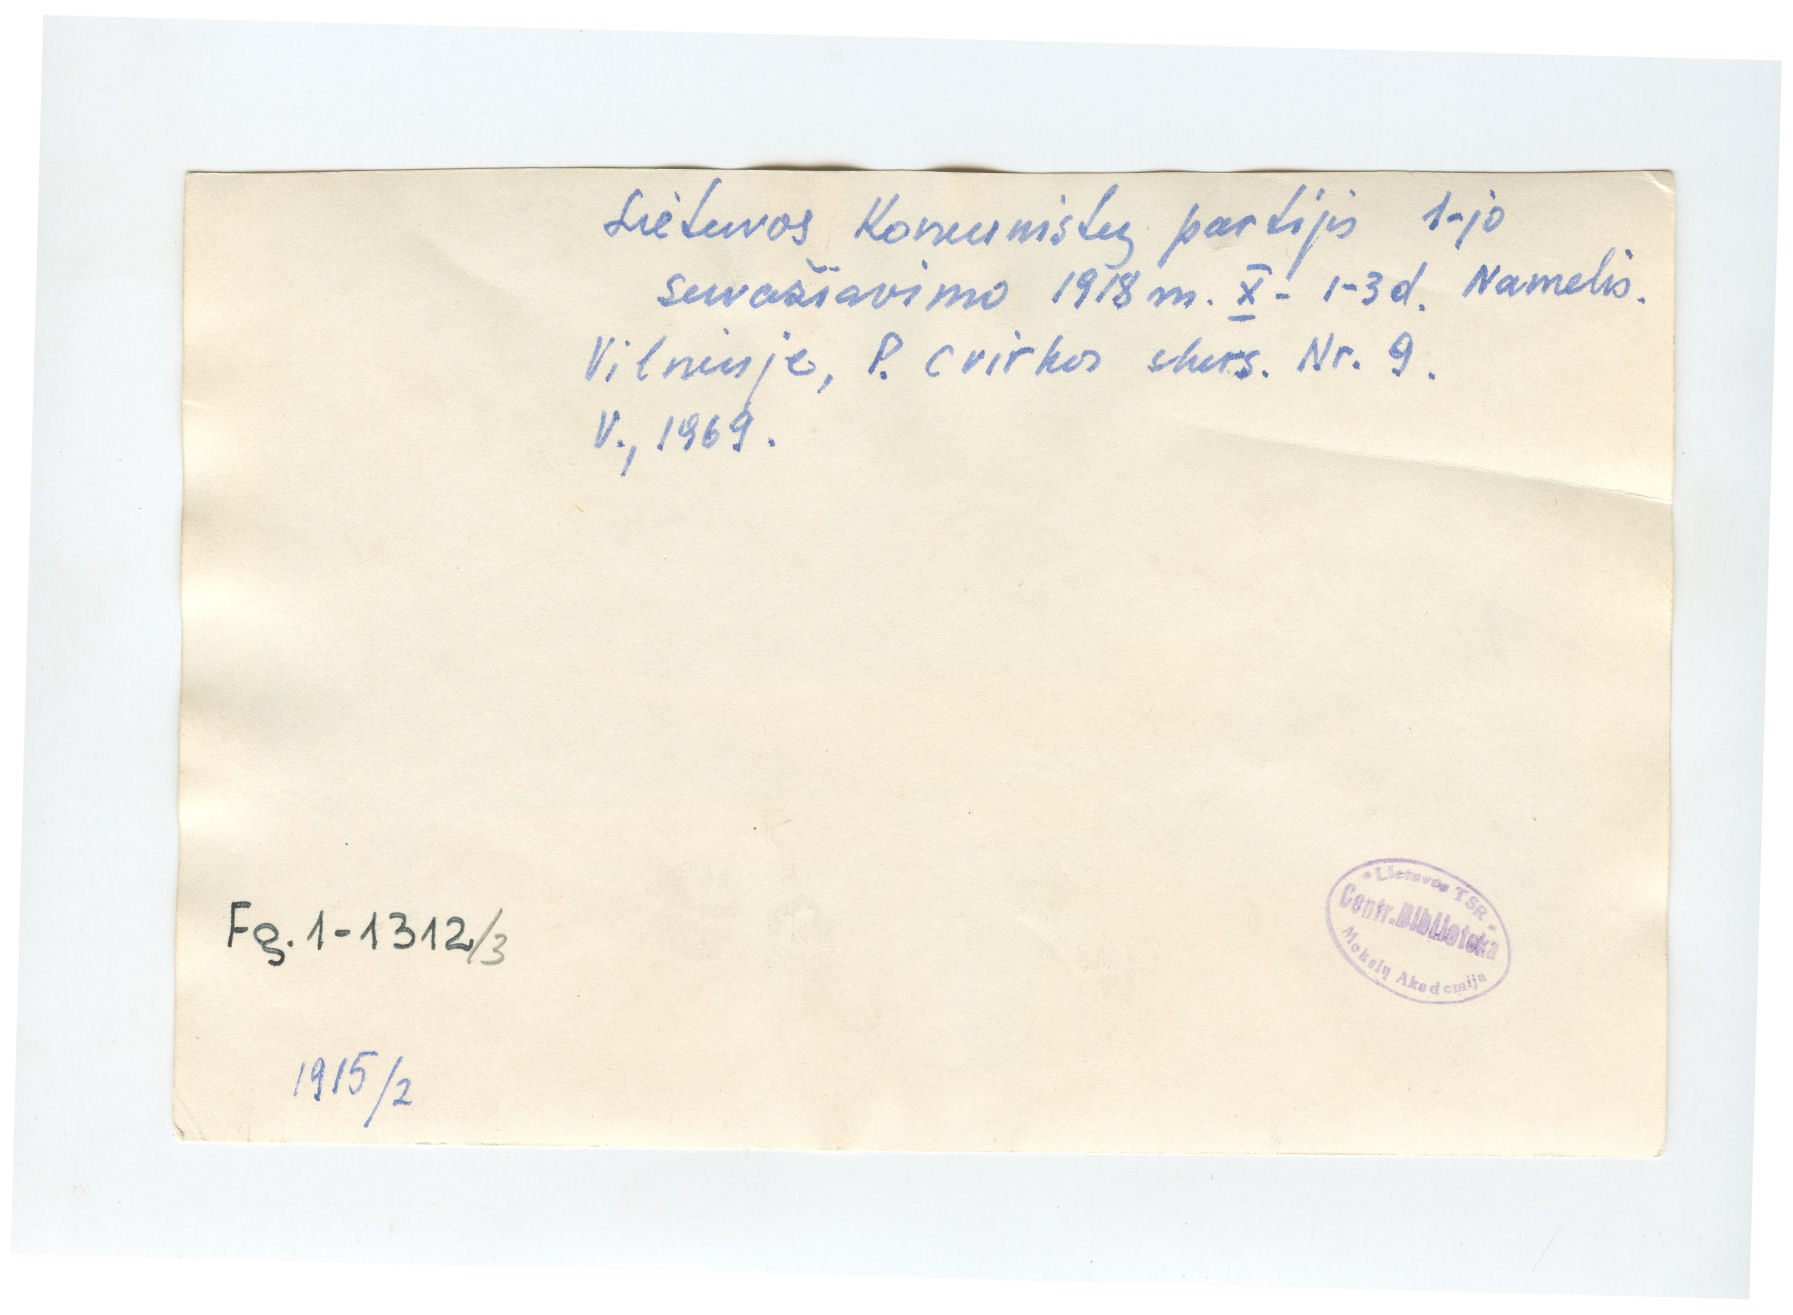 Lietuvos Komunistų partijos 1-jo
suvažiavimo 1918 m. X - 1-3 d. Namelis.
Vilniuje, P. Cvirkos skers. Nr. 9.
V., 1969.
Fg. 1-1312/3
1915/2
Lietuvos TSR
Centr. Biblioteka
Mokslų Akademija